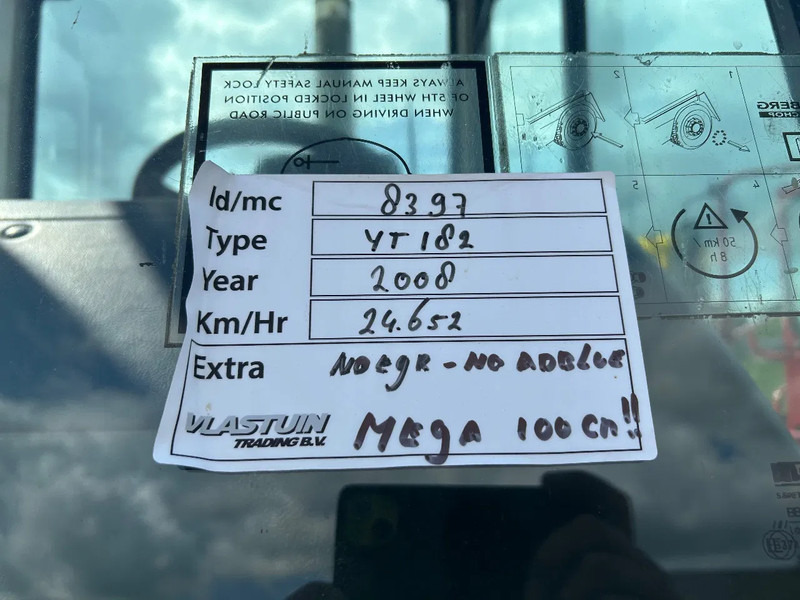 ALWAYS KEEP MANUAL SAFETY LOCK
OF 5TH WHEEL IN LOCKED POSITION
WHEN DRIVING ON PUBLIC ROAD
1
2
4
5
50 km/
8 h
Id/mc 8397
Type YT 182
Year 2008
Km/Hr 24.652
Extra NO EGR - NO ADBLUE
VLASTUIN
TRADING B.V.
MEGA 100 cm!!